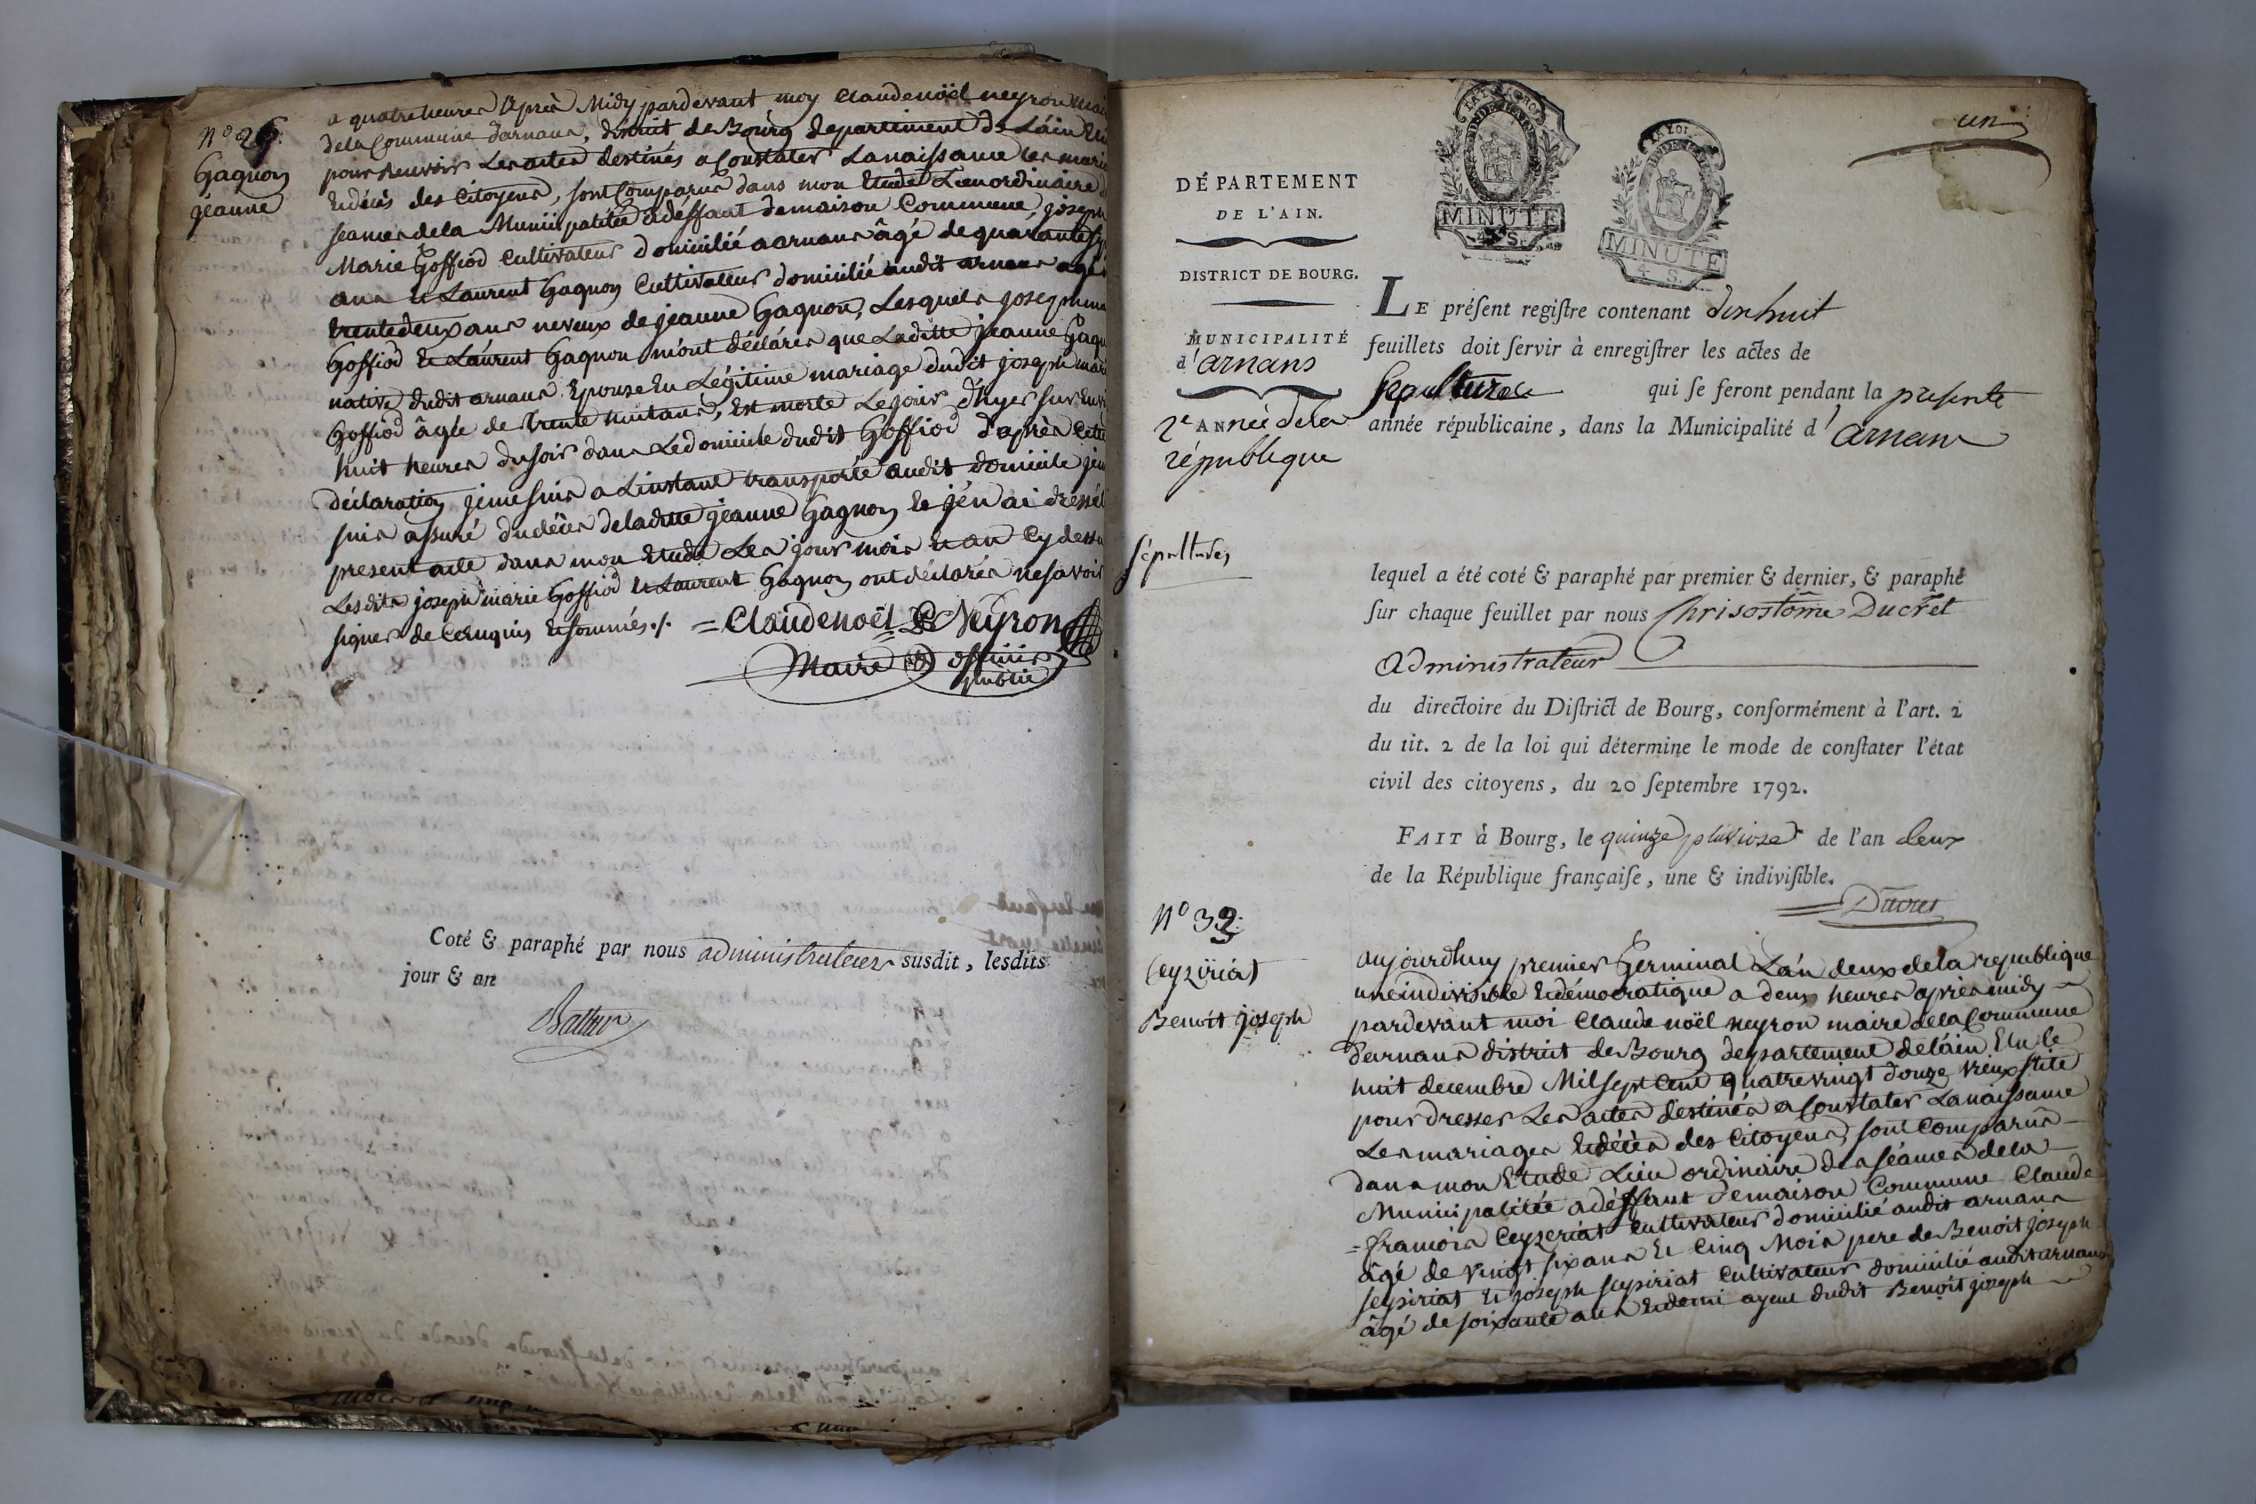 N° 26.
Gagnon
jeanne
a quatre heures aprés Midy pardevant moy Claude noël neyron mai
dela Commune darnans, district de Bourg departement de Láin Elu
pour Recevoir Les actes destinés a Constater La naissance les maria
Et décés des Citoyens, sont Comparus dans mon Etude Lieu ordinaire d
seances dela Municipalitée a déffaut de maison Commune, joseph
Marie Goffiod Cultivateur domicilié a arnans âgé de quarante
ans Et Laurent Gagnon Cultivateur domicilié audit arnans agé
trente deux ans neveux de jeanne Gagnon, Lesquels joseph ma
Goffiod Et Laurent Gagnon mont déclarés que Laditte jeanne Gagn
native dudit arnans Epouse En Légitime mariage dudit joseph mari
Goffiod âgée de trente huit ans, Est morte Le jour d'hyer sur Envi
huit heures du soir dans Le domicile dudit Goffiod d'aprés Cette
déclaration je me suis a Linstant transporté audit domicile je m
suis assuré du décés de laditte jeanne Gagnon Et j'en ai dressé l
present acte dans mon Etude Les jour mois et an Cy dessu
Lesdits joseph marie Goffiod Et Laurent Gagnon ont déclarés ne savoir
signer de Ce Enquis Et sommés ./. = Claude noël Neyron
Maire officier
public
Coté & paraphé par nous administrateur susdit, lesdits
jour & an
un
DÉPARTEMENT
DE L'AIN.
DISTRICT DE BOURG.
MUNICIPALITÉ
d'arnans
2e ANnée de la
république
sépultures
MINUTE
4 S.
LA LOI
MINUTE
4 S.
LE présent registre contenant dix huit
feuillets doit servir à enregistrer les actes de
Sepulture qui se feront pendant la presente
année républicaine, dans la Municipalité d'arnans
lequel a été coté & paraphé par premier & dernier, & paraphé
sur chaque feuillet par nous Chrisostôme Ducret
administrateur
du directoire du District de Bourg, conformément à l'art. 2
du tit. 2 de la loi qui détermine le mode de constater l'état
civil des citoyens, du 20 septembre 1792.
FAIT à Bourg, le quinze pluviose de l'an deux
de la République française, une & indivisible.
Ducret
N° 32.
Ceyzériat
Benoit joseph
aujourdhuy premier Germinal L'an deux de la republique
une indivisible Et démocratique a deux heures aprés midy
pardevant moi Claude noël neyron maire dela Commune
darnans district de Bourg departement de láin Elu le
huit decembre Mil sept Cent quatre vingt douze vieux stile
pour dresser Les actes destinés a Constater La naissance
Les mariages Et décés des Citoyens sont Comparus
dans mon Etude Lieu ordinaire des séances de la
Municipalitée a déffaut de maison Commune Claude
=francois Ceyzeriat Cultivateur domicilié audit arnans
âgé de vingt six ans Et Cinq Mois pere de Benoit joseph
seysiriat Et joseph seysiriat Cultivateur domicilié audit arnans
âgé de soixante ans Et demi ayeul dudit Benoit joseph